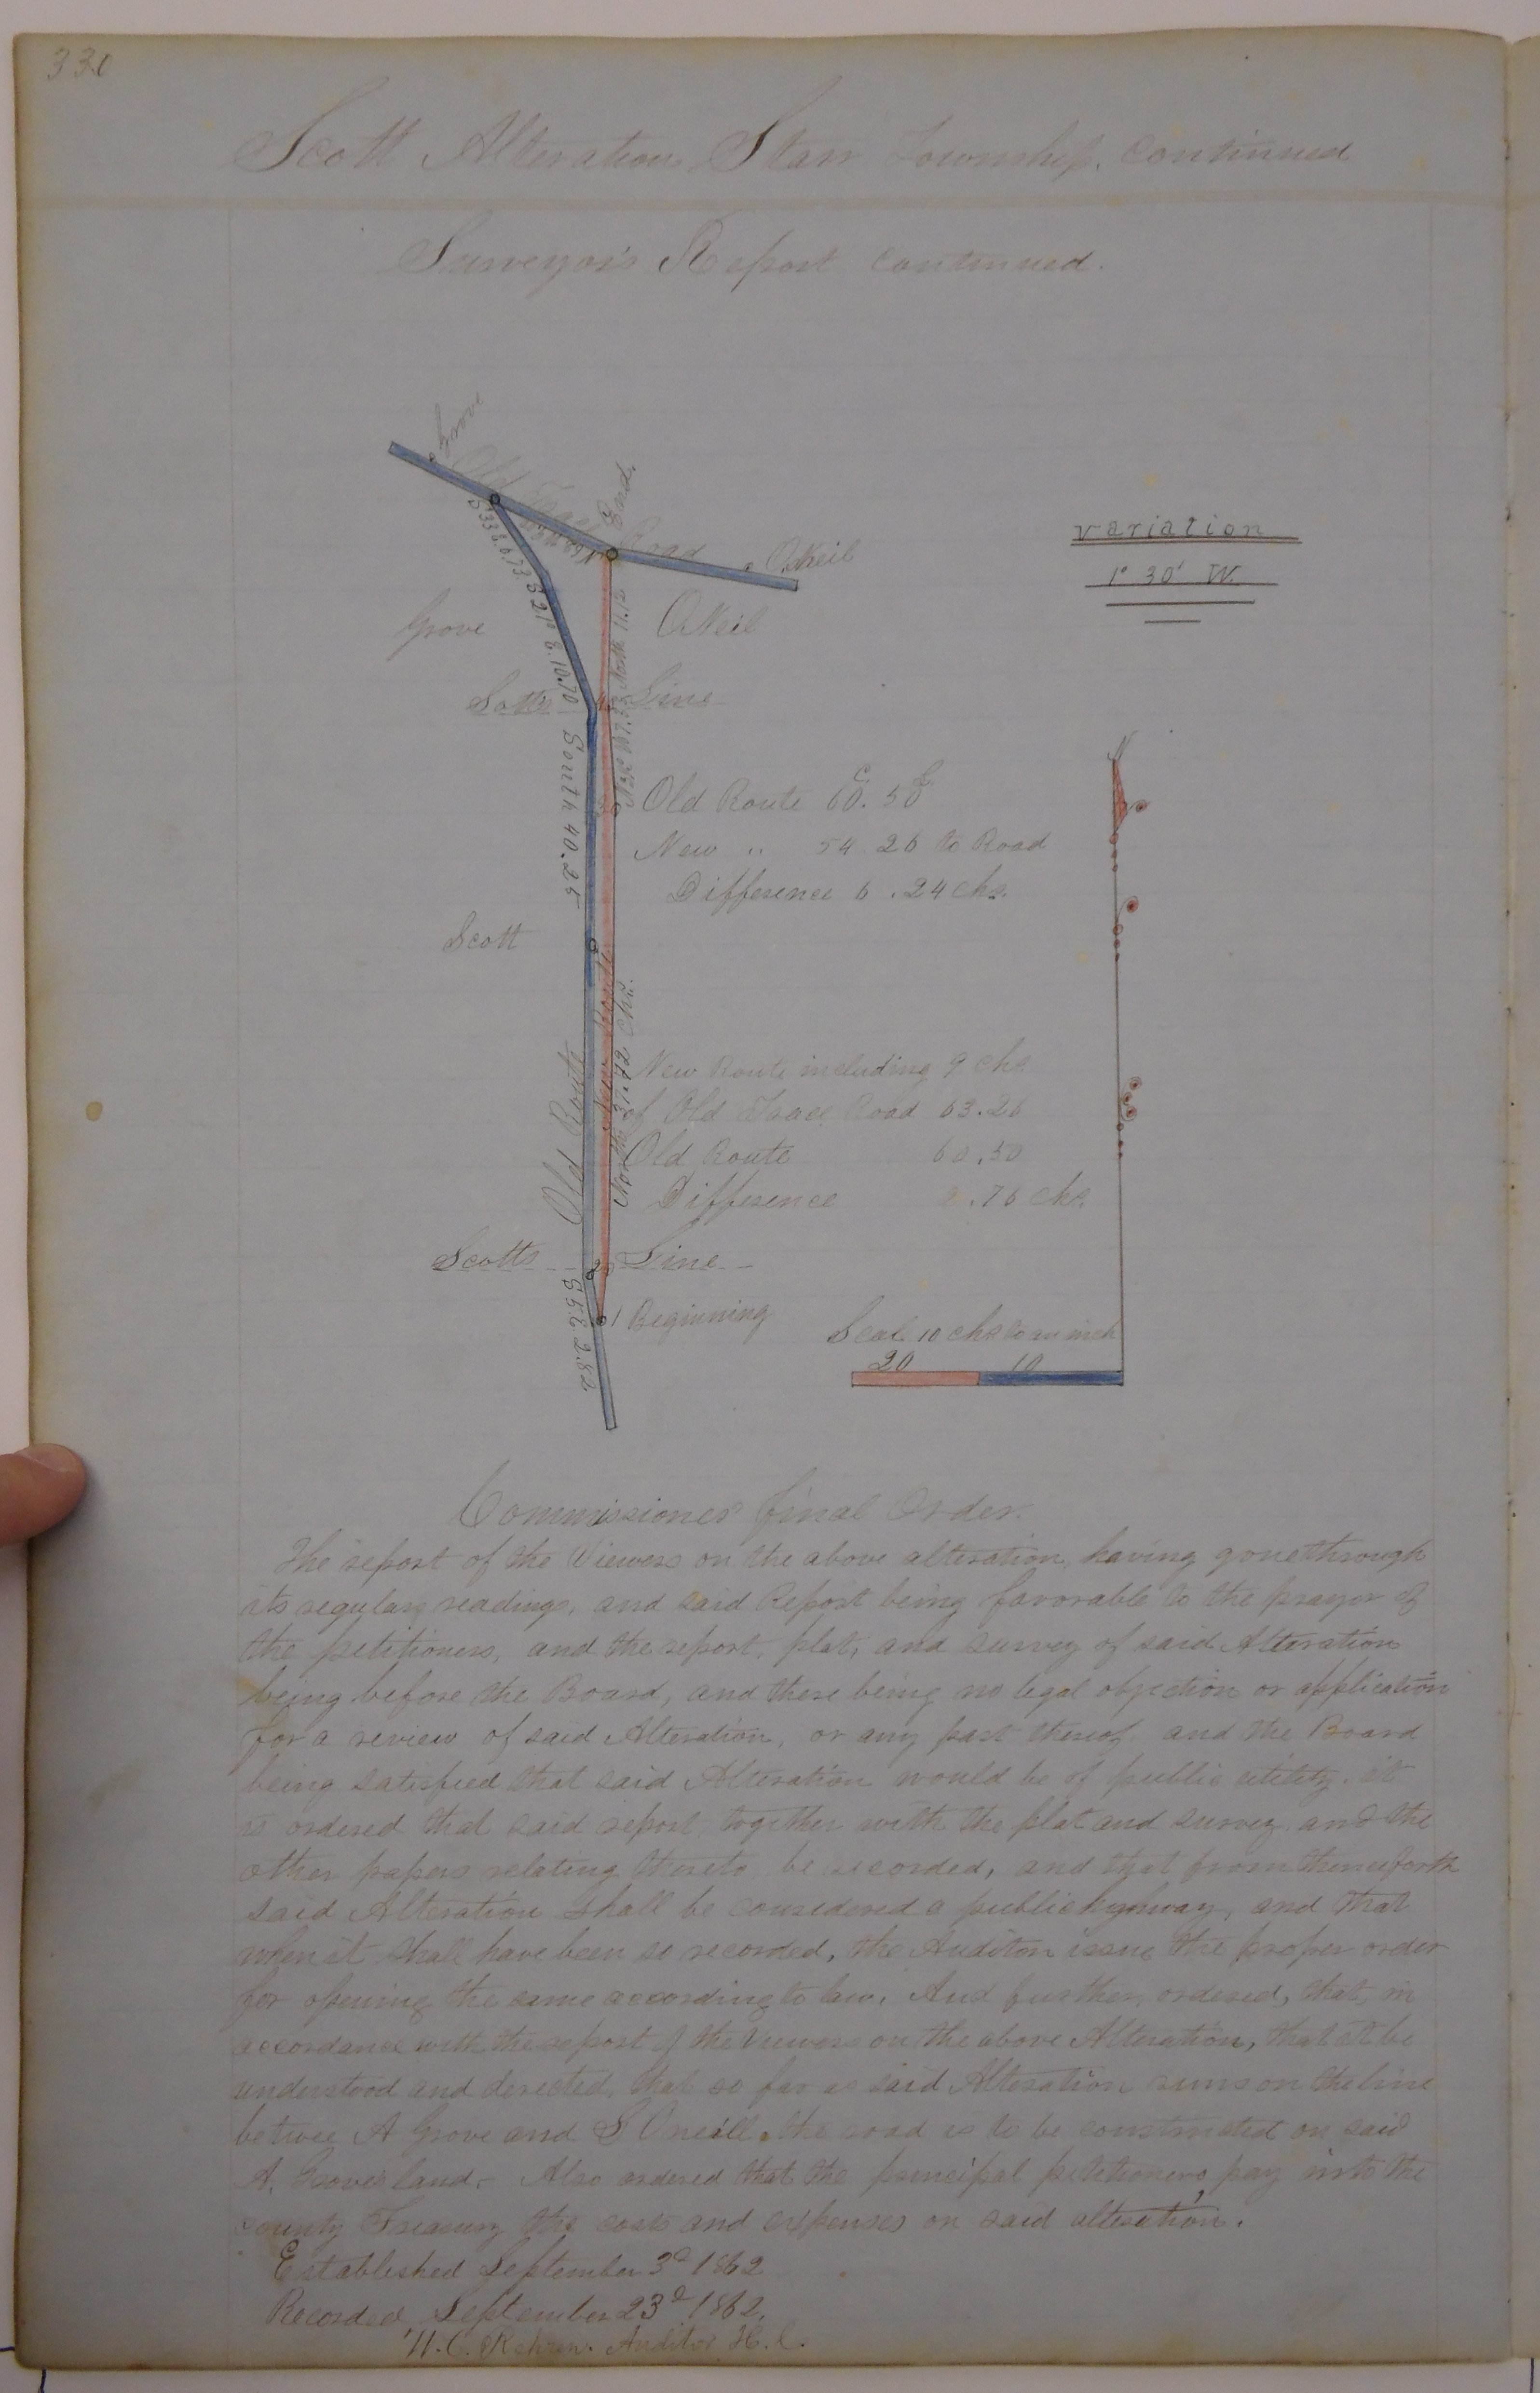 330
Scott Alteration Starr Township. Continued
Surveyor's Report continued.
Grove
Old Road
End.
O.Neil
variation
1° 30' W.
S 33 E. 6.73
S 21° E. 10.70
North 11.12
Grove
O.Neil
Scotts Line
N
South 40.25
Old Route 60.50
New " 54 26 to Road
Difference 6 .24 chs.
Scott
New Route
North 31.72 chs.
Old Route
New Route including 9 chs
of Old Road 63.26
Old Route 60.50
Difference .76 chs.
Scotts Line
2
1 Beginning
S 5 E 2.82
Scal 10 chs to an inch
20 10
Commissioners final Order.
The report of the Viewers on the above alteration, having gone through
its regular readings, and said Report being favorable to the prayer of
the petitioners, and the report, plat, and survey of said Alteration
being before the Board, and there being no legal objection or application
for a review of said Alteration, or any part thereof, and the Board
being satisfied that said Alteration would be of public utility. it
is ordered that said report together with the plat and survey and the
other papers relating thereto be recorded, and that from thenceforth
said Alteration shall be considered a public highway, and that
when it shall have been so recorded, the Auditor issue the proper order
for opening the same according to law. And further ordered, that, in
accordance with the report of the Viewers on the above Alteration, that it be
understood and derected, that so far as said Alteration runs on the line
betwee A Grove and S Oneill, the road is to be constructed on said
A. Groves land. Also ordered that the principal petitioners pay into the
county Treasury the costs and expenses on said alteration.
Established September 3d 1862
Recorded, September 23d 1862.
Auditor H.C.